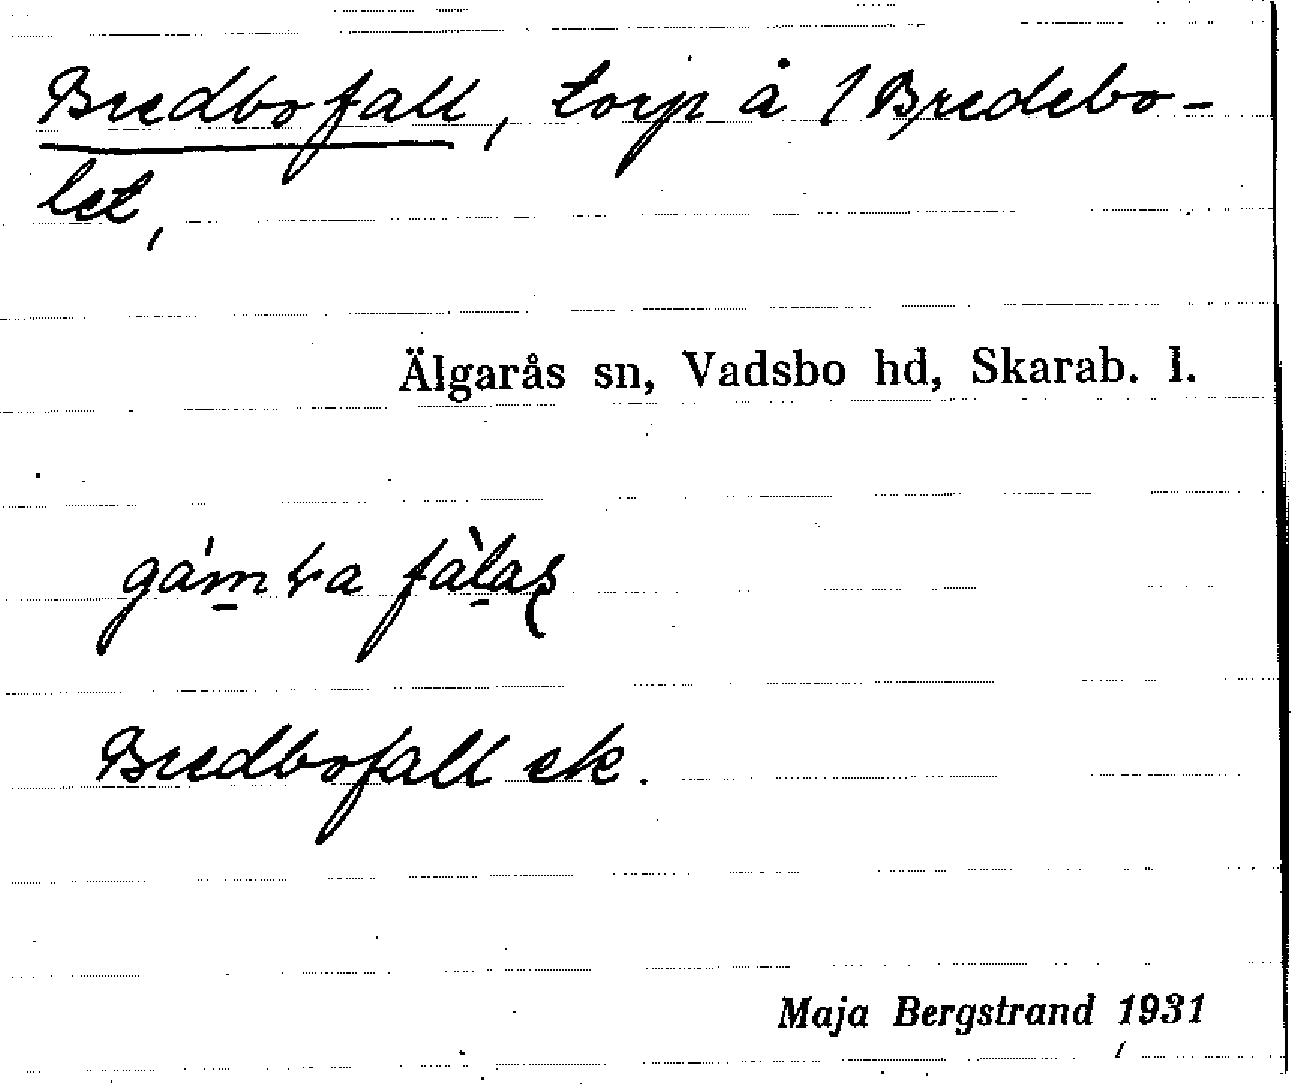 Bredbofall, torp å 1 Bredebo-
let,
Älgarås sn, Vadsbo hd, Skarab. l.
Bredbofall ek.
Maja Bergstrand 1931